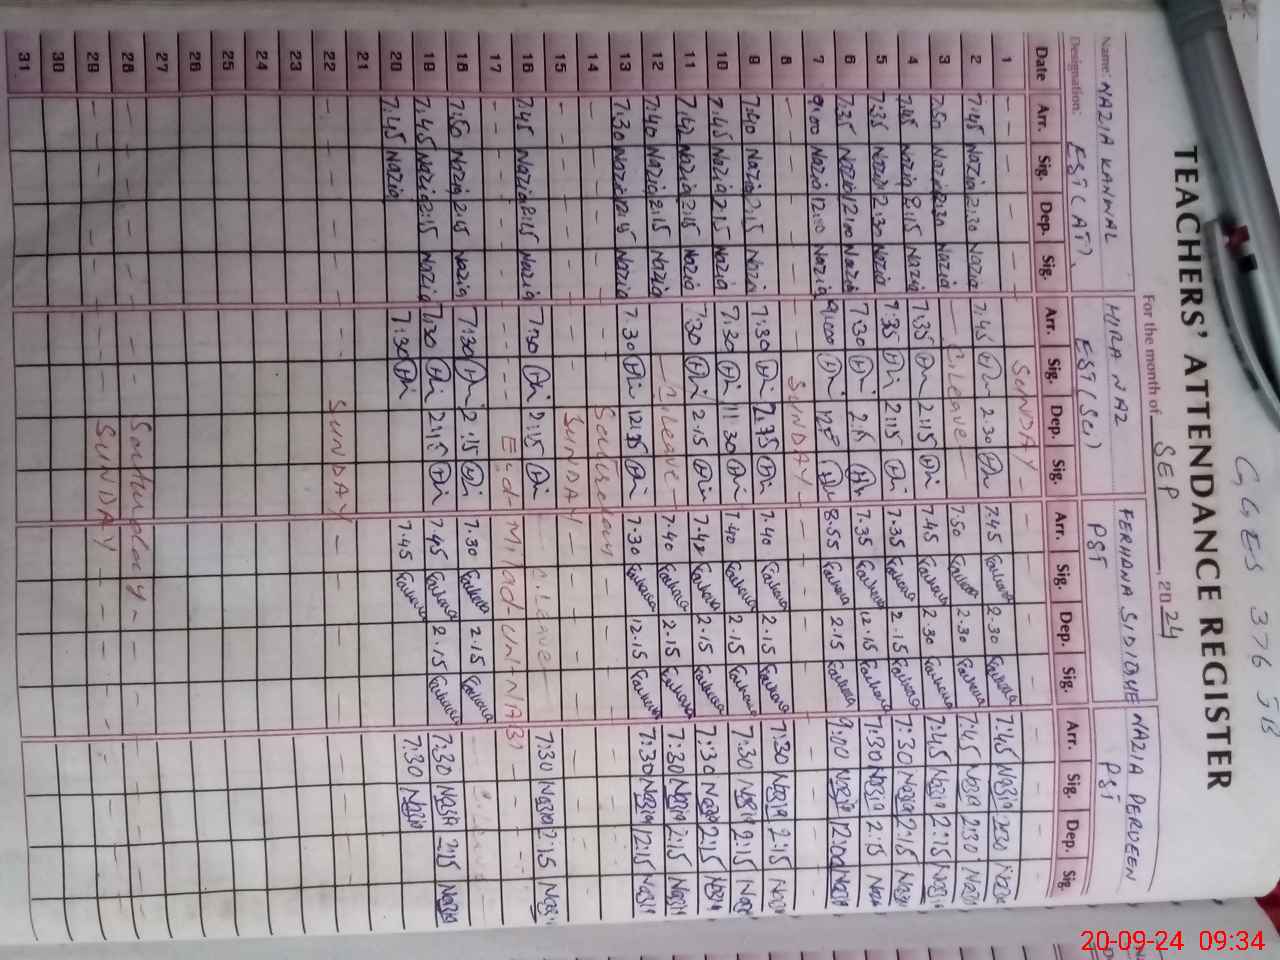 G.GES 376 JB
TEACHERS' ATTENDANCE REGISTER
For the month of SEP 2024
Name: NAZIA KANWAL HIRA NAZ FERHANA SIDIQUE NAZIA PERVEEN
Designation: EST (AT). EST (Sci) PST PST
Date Arr. Sig. Dep. Sig. Arr. Sig. Dep. Sig. Arr. Sig. Dep. Sig. Arr. Sig. Dep. Sig.
1 - - - - SUNDAY - - - - -
2 7:45 Nazia 2:30 Nazia 7:45 2.30 7.45 Farhana 2.30 Farhana 7:45 Nazia 2:30 Nazia
3 7:50 Nazia 2:30 Nazia C.leave 7.50 Farhana 2.30 Farhana 7:45 Nazia 2:30 Nazia
4 7:45 Nazia 2:15 Nazia 7:35 2:15 7.45 Farhana 2.30 Farhana 7:45 Nazia 2:15 Nazia
5 7:35 Nazia 2:30 Nazia 7:35 2:15 7.35 Farhana 2.15 Farhana 7:30 Nazia 2:15 Nazia
6 7:35 Nazia 12:00 Nazia 7:30 7.35 Farhana 12.15 Farhana 7:30 Nazia 2:15 Nazia
7 9:00 Nazia 12:00 Nazia 9:00 8.55 Farhana 2.15 Farhana 9:00 Nazia 12:00 Nazia
8 - - - - SUNDAY - - - - -
9 7:40 Nazia 2:15 Nazia 7:30 7.40 Farhana 2.15 Farhana 7:30 Nazia 2:15 Nazia
10 7:45 Nazia 2:15 Nazia 7:30 11:30 7.40 Farhana 2.15 Farhana 7:30 Nazia 2:15 Nazia
11 7:42 Nazia 2:15 Nazia 7:30 2.15 7.42 Farhana 2.15 Farhana 7:30 Nazia 2:15 Nazia
12 7:40 Nazia 2:15 Nazia C.leave 7.40 Farhana 2.15 Farhana 7:30 Nazia 2:15 Nazia
13 7:30 Nazia 12:15 Nazia 7.30 7.30 Farhana 12.15 Farhana 7:30 Nazia 12:15 Nazia
14 - - - - Saturday - - - -
15 - - - - SUNDAY - - - -
16 7:45 Nazia 2:15 Nazia 7:30 2:15 C.leave 7:30 Nazia 2:15 Nazia
17 - - - - Eid-Milad-UN-NABI - - -
18 7:50 Nazia 2:15 Nazia 7:30 2:15 7.30 Farhana 2.15 Farhana C.leave
19 7:45 Nazia 2:15 Nazia 7:30 2:15 7.45 Farhana 2.15 Farhana 7:30 Nazia 2:15 Nazia
20 7:45 Nazia 7:30 7.45 Farhana 7:30 Nazia
21
22 - - - - SUNDAY - - - - -
23
24
25
26
27
28 - - - - Saturday - - - -
29 - - - - SUNDAY - - - - -
30
31
20-09-24 09:34